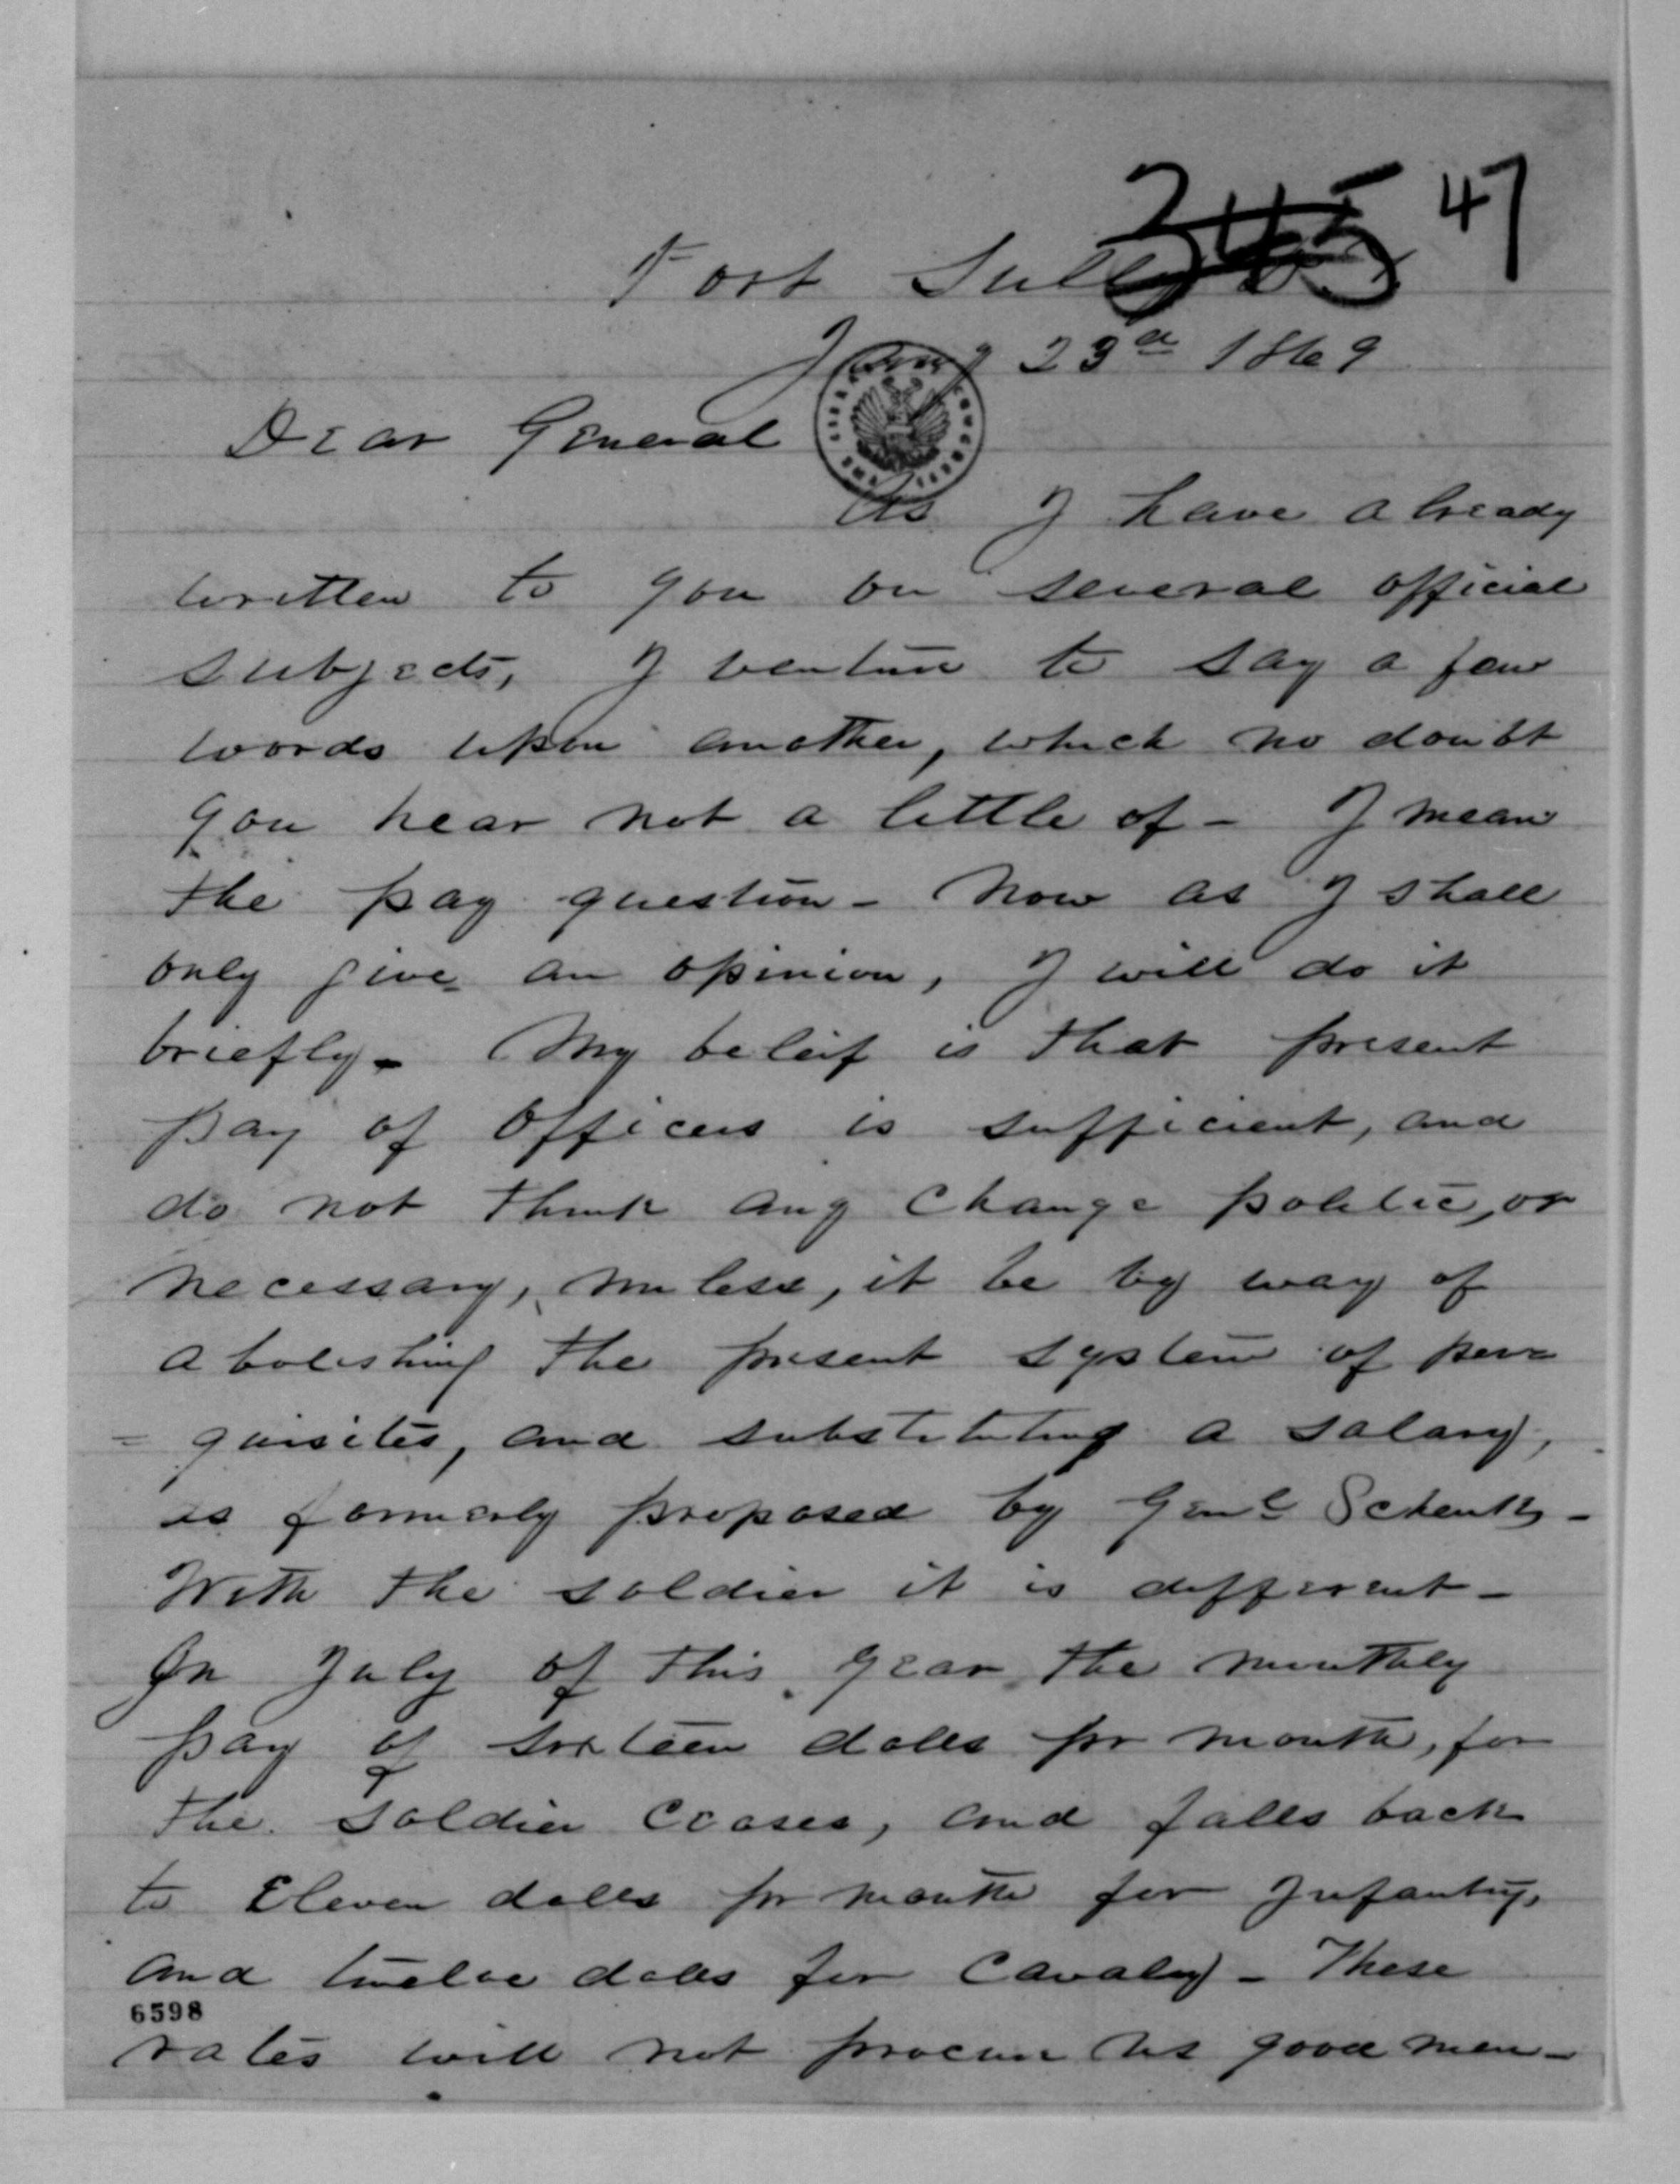 345 47
Fort Sully
Jany 23d 1869
Dear General
As I have already
written to you on several official
subjects, I venture to say a few
words upon another, which no doubt
you hear not a little of - I mean
the pay question - Now as I shall
only give an opinion, I will do it
briefly - My beleif is that present
pay of Officers is sufficient, and
do not think any change politic, or
necessary, unless, it be by way of
abolishing the present system of per=
=quisites, and substituting a salary,
as formerly proposed by Genl Schenk -
With the soldier it is different -
In July of this year the monthly
pay of sixteen dolls pr month, for
the soldier ceases, and falls back
to Eleven dolls pr month for Infantry,
and twelve dolls for Cavalry - These
6598
rates will not procure us good men -